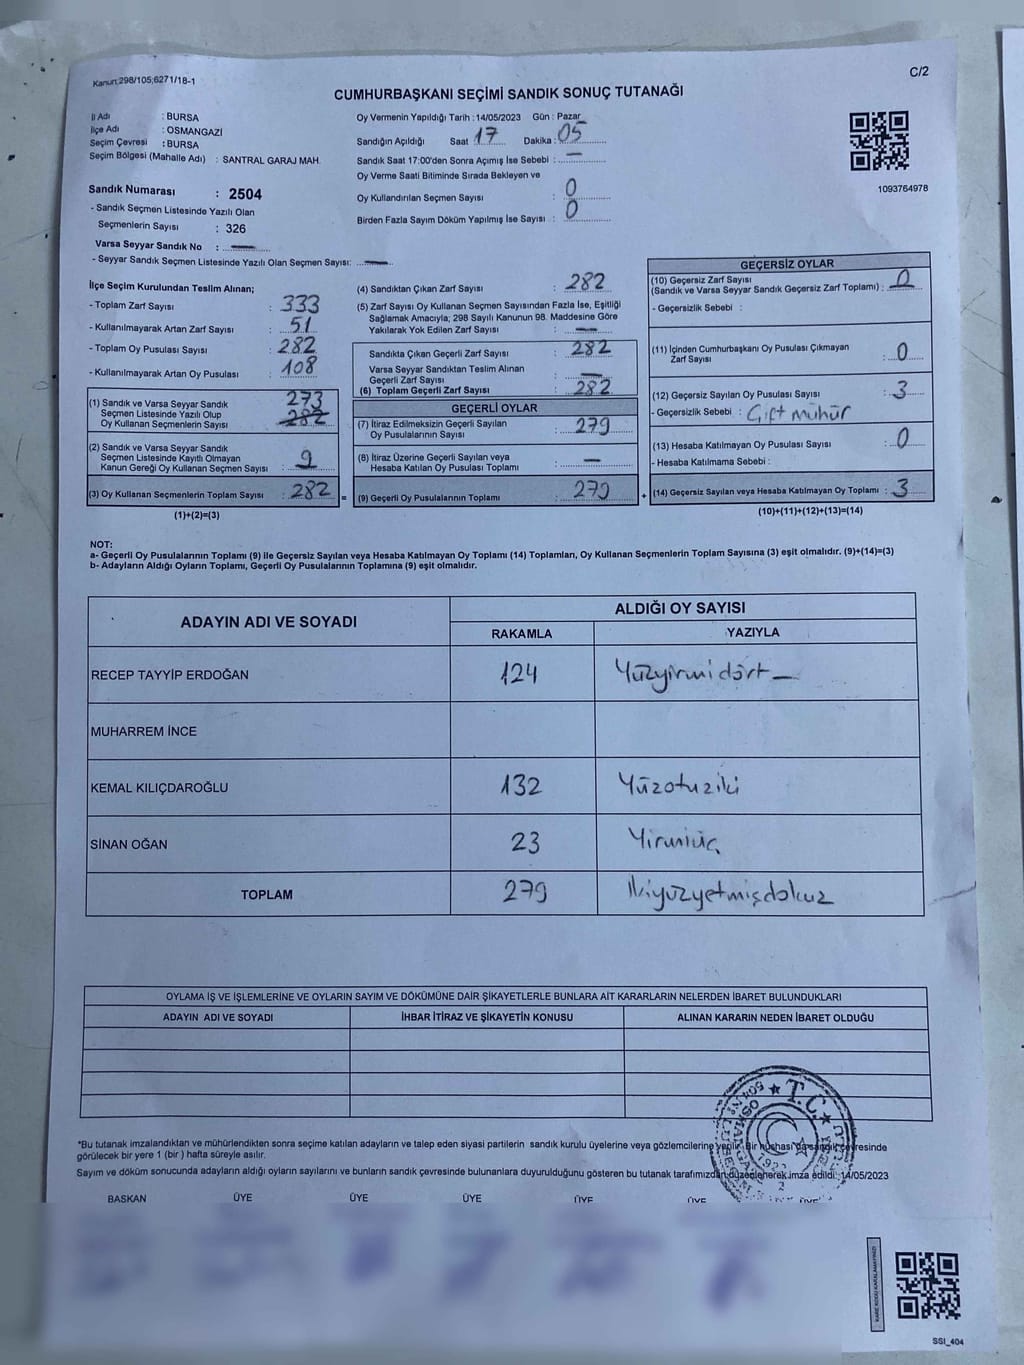 Kanun:298/105;6271/18-1
C/2
CUMHURBAŞKANI SEÇİMİ SANDIK SONUÇ TUTANAĞI
İl Adı : BURSA
İlçe Adı : OSMANGAZİ
Seçim Çevresi : BURSA
Seçim Bölgesi (Mahalle Adı) : SANTRAL GARAJ MAH.
Sandık Numarası : 2504
- Sandık Seçmen Listesinde Yazılı Olan
Seçmenlerin Sayısı : 326
Varsa Seyyar Sandık No : —
- Seyyar Sandık Seçmen Listesinde Yazılı Olan Seçmen Sayısı: —
Oy Vermenin Yapıldığı Tarih : 14/05/2023 Gün : Pazar
Sandığın Açıldığı Saat 17 Dakika : 05
Sandık Saat 17:00'den Sonra Açımış İse Sebebi : —
Oy Verme Saati Bitiminde Sırada Bekleyen ve
Oy Kullandırılan Seçmen Sayısı : 0
Birden Fazla Sayım Döküm Yapılmış İse Sayısı : 0
1093764978
İlçe Seçim Kurulundan Teslim Alınan;
- Toplam Zarf Sayısı : 333
- Kullanılmayarak Artan Zarf Sayısı : 51
- Toplam Oy Pusulası Sayısı : 282
- Kullanılmayarak Artan Oy Pusulası : 108
(1) Sandık ve Varsa Seyyar Sandık 273
Seçmen Listesinde Yazılı Olup
Oy Kullanan Seçmenlerin Sayısı : 282
(2) Sandık ve Varsa Seyyar Sandık
Seçmen Listesinde Kayıtlı Olmayan
Kanun Gereği Oy Kullanan Seçmen Sayısı : 9
(3) Oy Kullanan Seçmenlerin Toplam Sayısı : 282 =
(1)+(2)=(3)
(4) Sandıktan Çıkan Zarf Sayısı : 282
(5) Zarf Sayısı Oy Kullanan Seçmen Sayısından Fazla İse, Eşitliği
Sağlamak Amacıyla; 298 Sayılı Kanunun 98. Maddesine Göre
Yakılarak Yok Edilen Zarf Sayısı : —
Sandıkta Çıkan Geçerli Zarf Sayısı : 282
Varsa Seyyar Sandıktan Teslim Alınan
Geçerli Zarf Sayısı : —
(6) Toplam Geçerli Zarf Sayısı : 282
GEÇERLİ OYLAR
(7) İtiraz Edilmeksizin Geçerli Sayılan
Oy Pusulalarının Sayısı : 279
(8) İtiraz Üzerine Geçerli Sayılan veya
Hesaba Katılan Oy Pusulası Toplamı : —
(9) Geçerli Oy Pusulalarının Toplamı : 279 +
GEÇERSİZ OYLAR
(10) Geçersiz Zarf Sayısı
(Sandık ve Varsa Seyyar Sandık Geçersiz Zarf Toplamı) : 0
- Geçersizlik Sebebi :
(11) İçinden Cumhurbaşkanı Oy Pusulası Çıkmayan
Zarf Sayısı : 0
(12) Geçersiz Sayılan Oy Pusulası Sayısı : 3
- Geçersizlik Sebebi : Çift mühür
(13) Hesaba Katılmayan Oy Pusulası Sayısı : 0
- Hesaba Katılmama Sebebi :
(14) Geçersiz Sayılan veya Hesaba Katılmayan Oy Toplamı : 3
(10)+(11)+(12)+(13)=(14)
NOT:
a- Geçerli Oy Pusulalarının Toplamı (9) ile Geçersiz Sayılan veya Hesaba Katılmayan Oy Toplamı (14) Toplamları, Oy Kullanan Seçmenlerin Toplam Sayısına (3) eşit olmalıdır. (9)+(14)=(3)
b- Adayların Aldığı Oyların Toplamı, Geçerli Oy Pusulalarının Toplamına (9) eşit olmalıdır.
ADAYIN ADI VE SOYADI
ALDIĞI OY SAYISI
RAKAMLA YAZIYLA
RECEP TAYYİP ERDOĞAN 124 Yüzyirmidört —
MUHARREM İNCE
KEMAL KILIÇDAROĞLU 132 Yüzotuziki
SİNAN OĞAN 23 Yirmiüç
TOPLAM 279 İkiyüzyetmişdokuz
OYLAMA İŞ VE İŞLEMLERİNE VE OYLARIN SAYIM VE DÖKÜMÜNE DAİR ŞİKAYETLERLE BUNLARA AİT KARARLARIN NELERDEN İBARET BULUNDUKLARI
ADAYIN ADI VE SOYADI İHBAR İTİRAZ VE ŞİKAYETİN KONUSU ALINAN KARARIN NEDEN İBARET OLDUĞU
T.C.
*Bu tutanak imzalandıktan ve mühürlendikten sonra seçime katılan adayların ve talep eden siyasi partilerin sandık kurulu üyelerine veya gözlemcilerine verilir. Bir nüshası da sandık çevresinde
görülecek bir yere 1 (bir ) hafta süreyle asılır.
Sayım ve döküm sonucunda adayların aldığı oyların sayılarını ve bunların sandık çevresinde bulunanlara duyurulduğunu gösteren bu tutanak tarafımızdan düzenlenerek imza edildi. 14/05/2023
BAŞKAN ÜYE ÜYE ÜYE ÜYE ÜYE ÜYE
KARE KODU KARALAMAYINIZ!
SSI_404